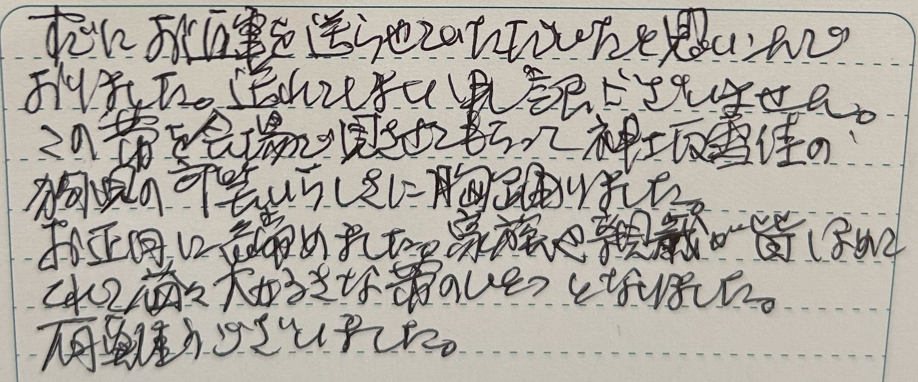 すでにお返事を送らせていただいたと思いこんで
おりました。遅れてしまい申し訳ございません。
この帯を会場で見させてもらって神坂雪佳の
狗児の可愛いらしさに胸踊りました。
お正月に締めました。家族や親戚が皆ほめて
くれて益々大好きな帯のひとつとなりました。
有難うございました。